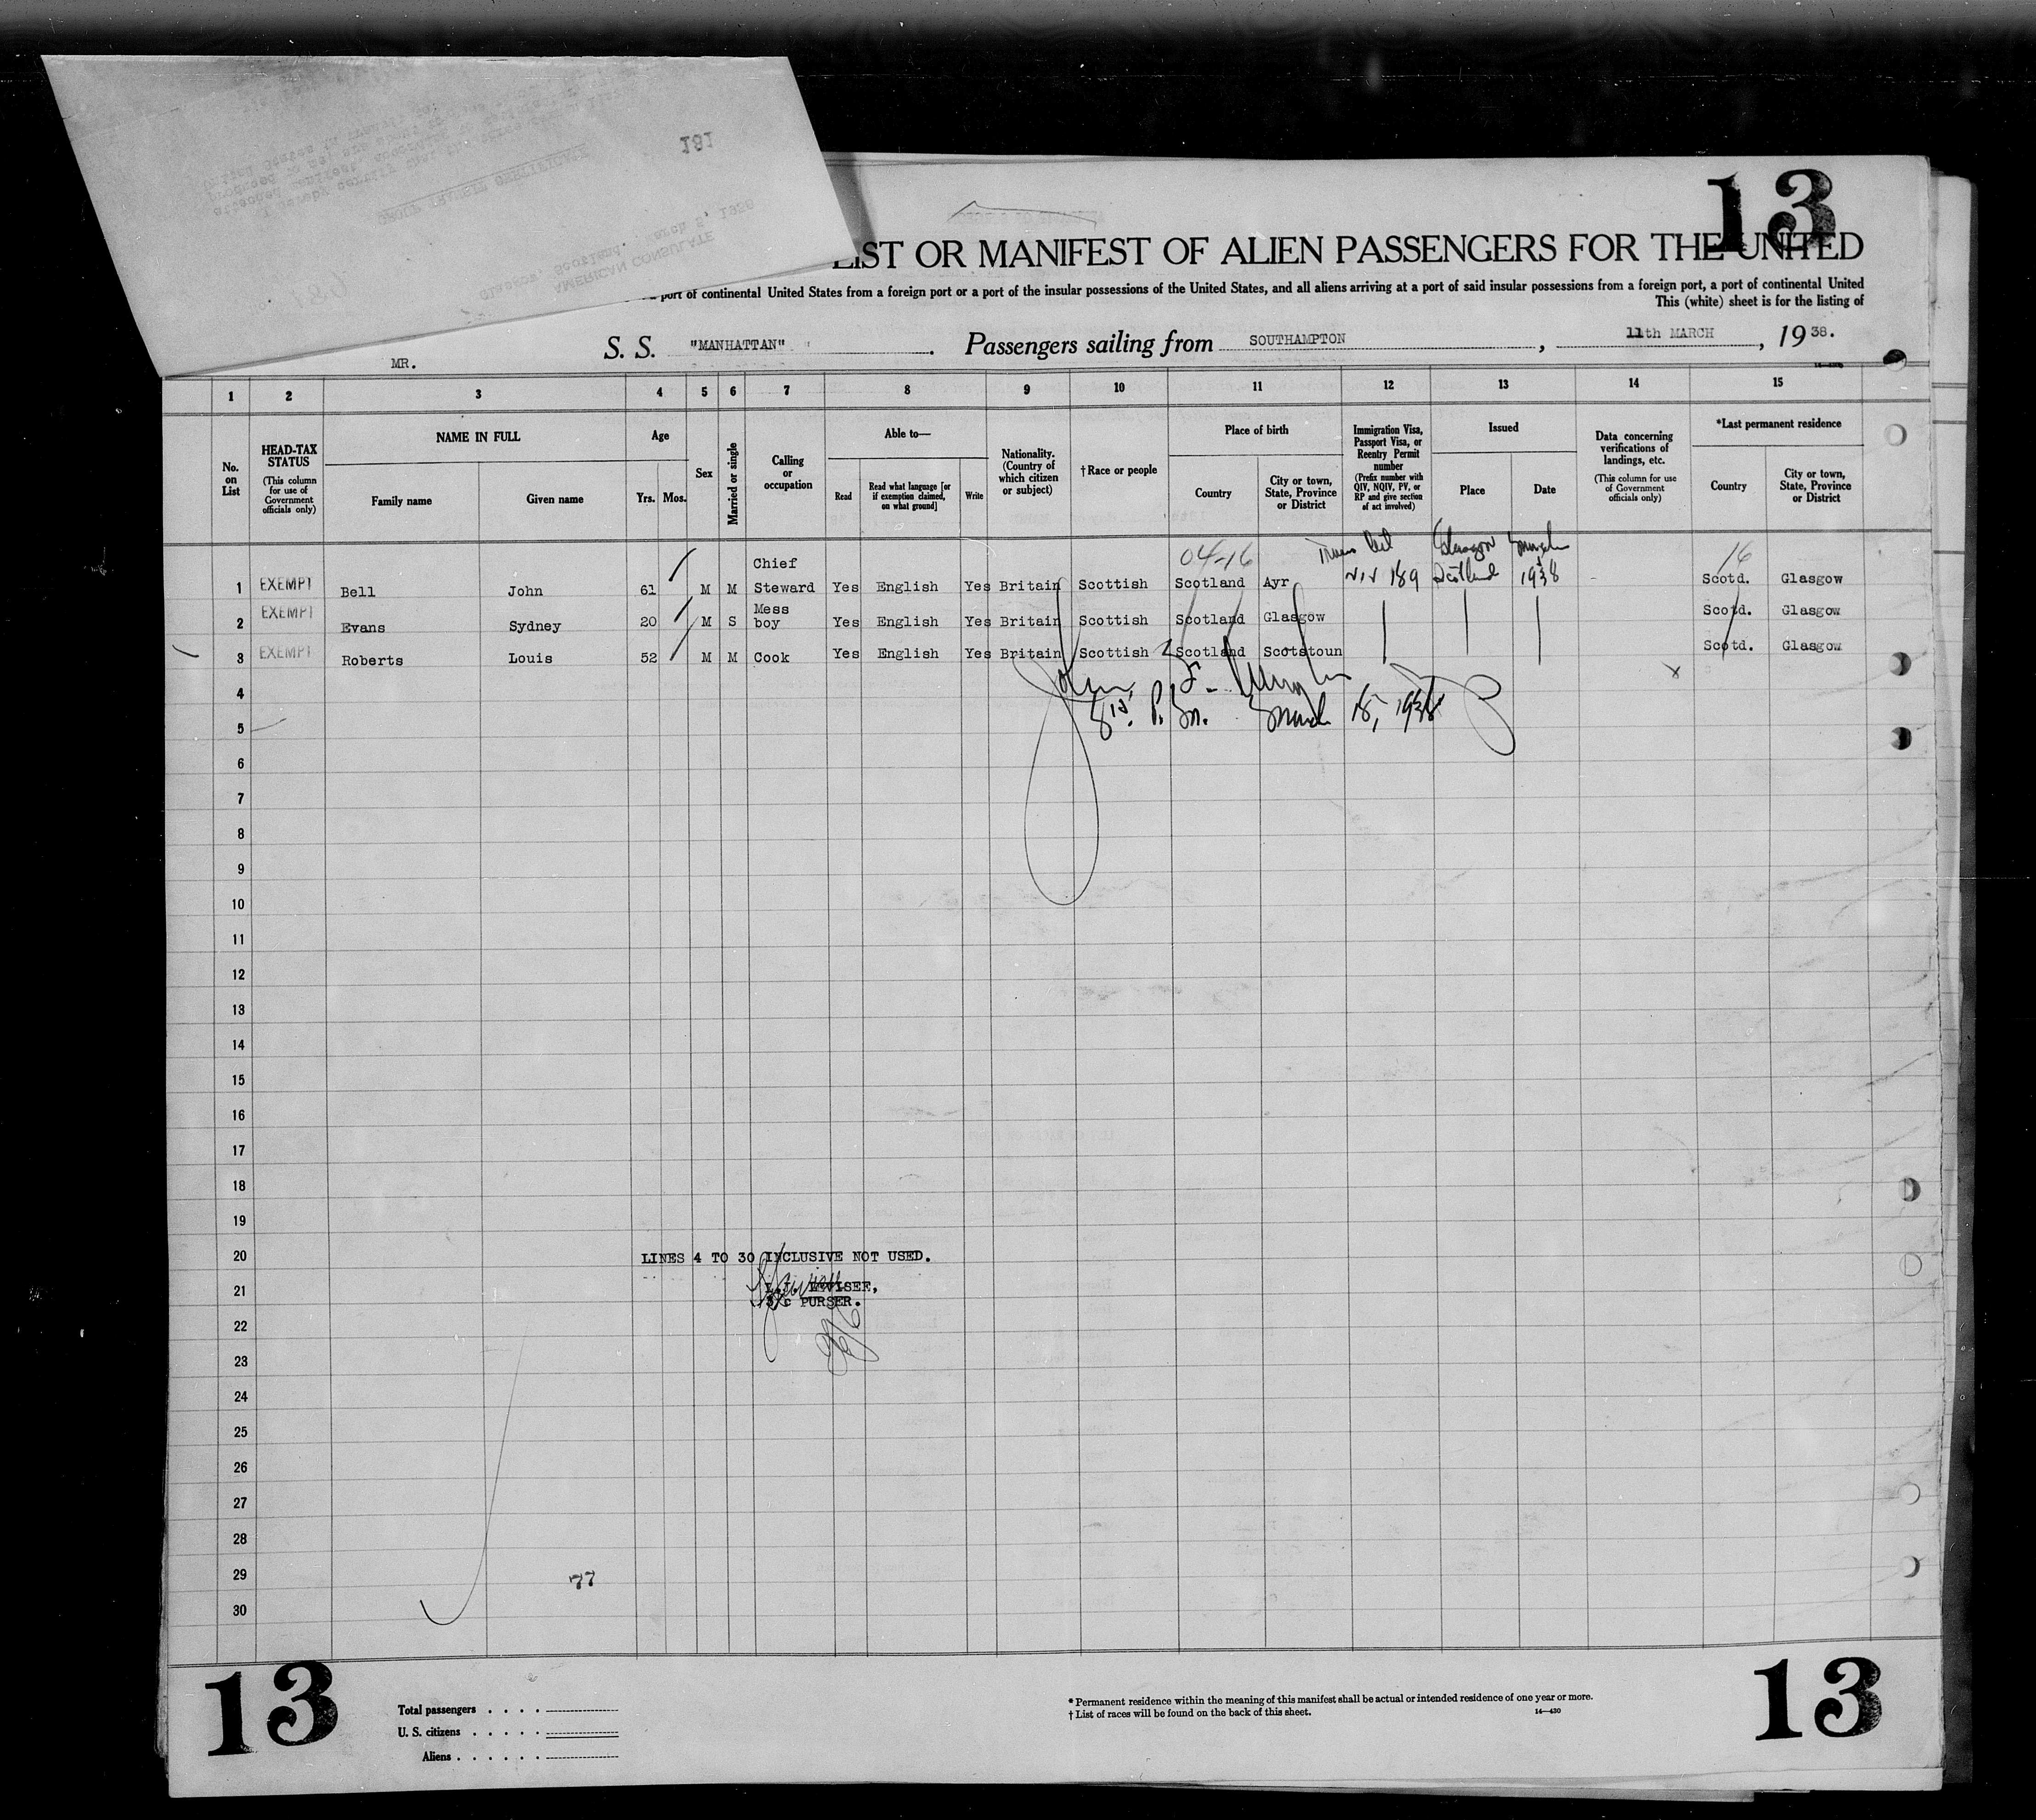 181
GROUP TRANSIT CERTIFICATE
AMERICAN CONSULATE
Glasgow, Scotland,
13
LIST OR MANIFEST OF ALIEN PASSENGERS FOR THE UNITED
port of continental United States from a foreign port or a port of the insular possessions of the United States, and all aliens arriving at a port of said insular possessions from a foreign port, a port of continental United
This (white) sheet is for the listing of
S. S. "MANHATTAN" . Passengers sailing from SOUTHAMPTON , 11th MARCH , 1938.
MR.
1 2 3 4 5 6 7 8 9 10 11 12 13 14 15
No. on List
HEAD-TAX STATUS (This column for use of Government officials only)
NAME IN FULL
Family name Given name
Age
Yrs. Mos.
Sex
Married or single
Calling or occupation
Able to—
Read Read what language [or if exemption claimed, on what ground] Write
Nationality. (Country of which citizen or subject)
†Race or people
Place of birth
Country City or town, State, Province or District
Immigration Visa, Passport Visa, or Reentry Permit number (Prefix number with QIV, NQIV, PV, or RP and give section of act involved)
Issued
Place Date
Data concerning verifications of landings, etc. (This column for use of Government officials only)
*Last permanent residence
Country City or town, State, Province or District
04-16 Glasgow March 16
1 EXEMPT Bell John 61 M M Chief Steward Yes English Yes Britain Scottish Scotland Ayr 189 Scotland 1938 Scotd. Glasgow
2 EXEMPT Evans Sydney 20 M S Mess boy Yes English Yes Britain Scottish Scotland Glasgow Scotd. Glasgow
3 EXEMPT Roberts Louis 52 M M Cook Yes English Yes Britain Scottish Scotland Scotstoun Scotd. Glasgow
4
5 March 18, 1938
6
7
8
9
10
11
12
13
14
15
16
17
18
19
20 LINES 4 TO 30 INCLUSIVE NOT USED.
21
PURSER.
22
23
24
25
26
27
28
29 77
30
13
Total passengers . . . .
U. S. citizens . . . . .
Aliens . . . . . .
* Permanent residence within the meaning of this manifest shall be actual or intended residence of one year or more.
† List of races will be found on the back of this sheet. 14—430
13